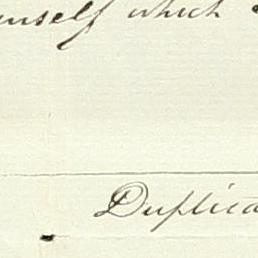 mself which
Duplica